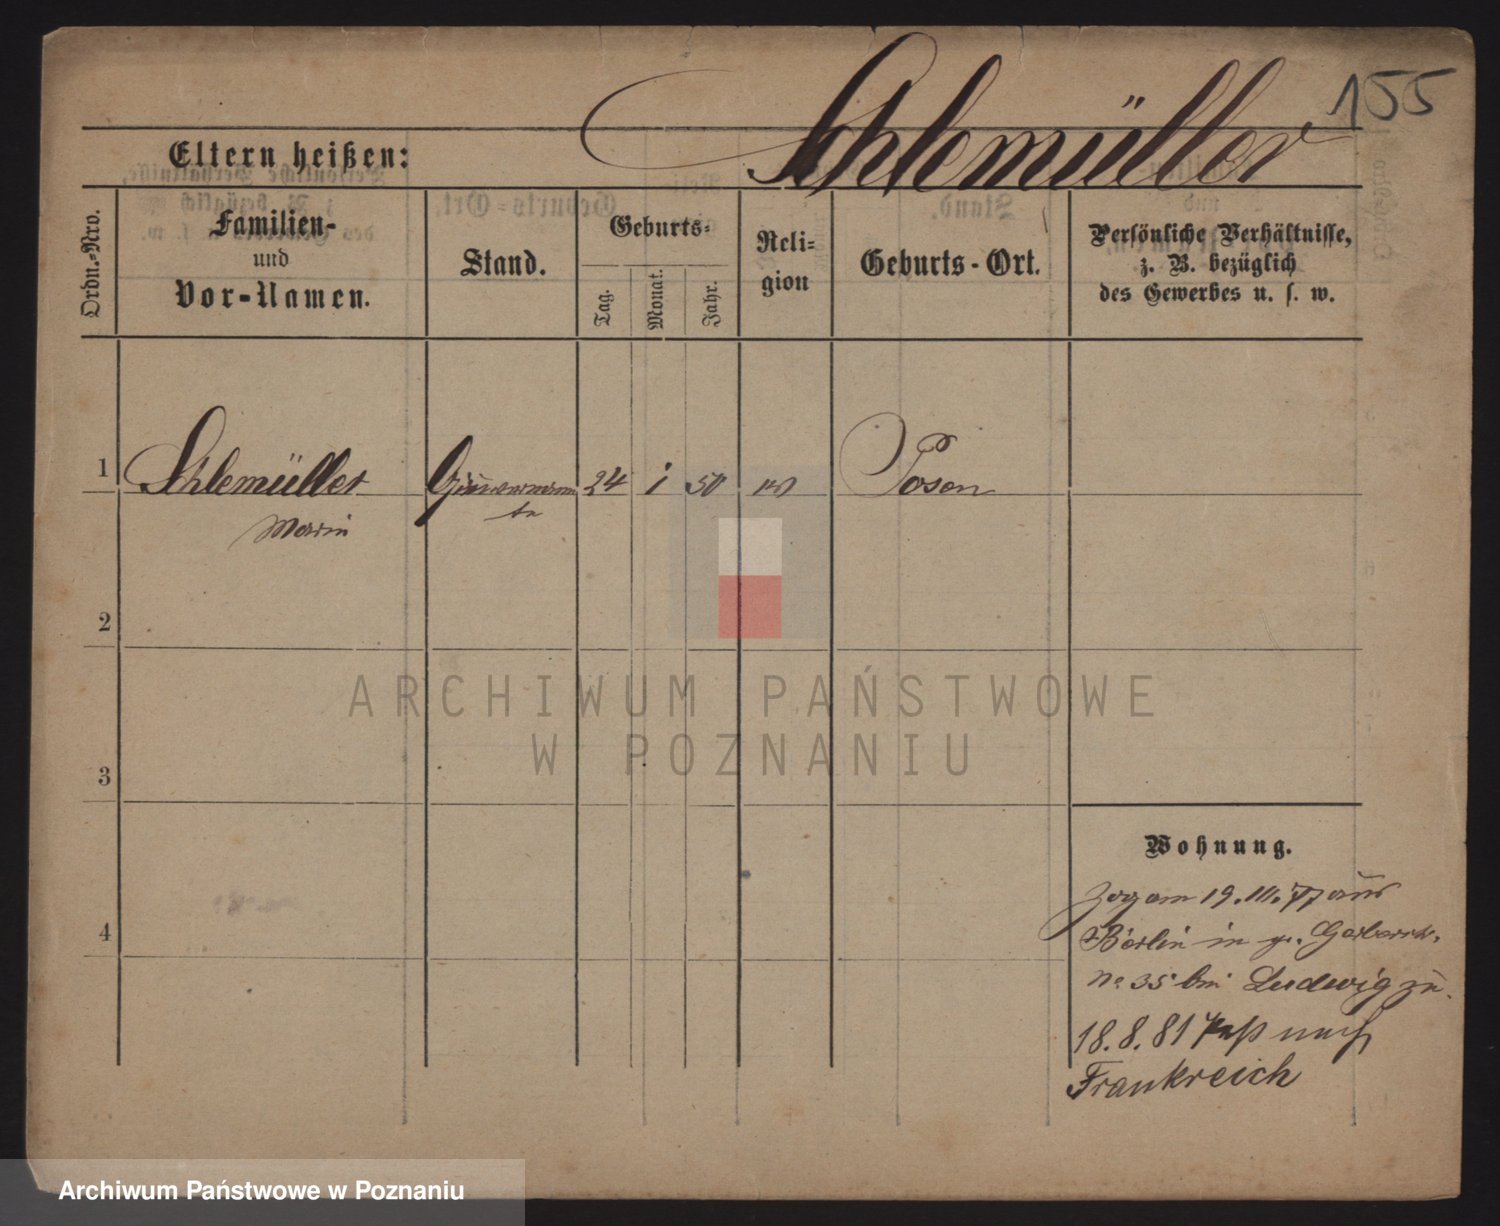 155
Schlemüller
Eltern heißen:
Ordn.-Nro.
Familien-
und
Vor-Namen.
Stand.
Geburts-
Tag.
Monat.
Jahr.
Reli-
gion
Geburts-Ort.
Persönliche Verhältnisse,
z. B. bezüglich
des Gewerbes u. s. w.
1
Schlemüller
24
1
50
ev
Posen
Marie
2
ARCHIWUM PAŃSTWOWE
W POZNANIU
3
Wohnung.
Zog am 19. III. 77 aus
4
Berlin in gr. Gerberstr.
No 35 bei Ludwig zu.
18.8.81 Paß nach
Frankreich
Archiwum Państwowe w Poznaniu